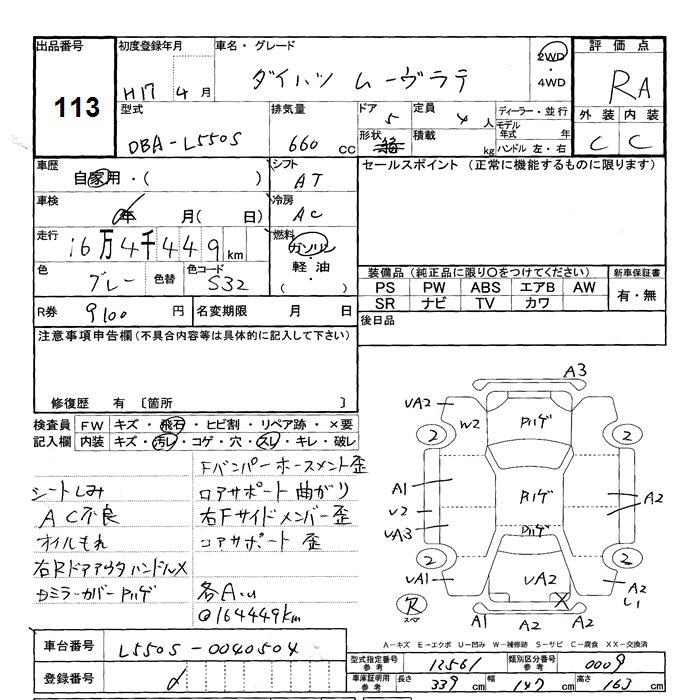 出品番号 初度登録年月 車名・グレード 2WD 評価点
113 H17年4月 ダイハツ ムーヴラテ ・4WD RA
型式 排気量 ドア 5 定員 4人 ディーラー・並行 外装 内装
DBA-L550S 660cc 形状 箱 積載 kg モデル年式 年 C C
ハンドル 左・右
車歴 自家用・( ) シフト AT セールスポイント(正常に機能するものに限ります)
車検 年 月( 日) 冷房 AC
走行 16万4千449km 燃料 ガソリン
色 グレー 色替 色コード S32 ・軽・油・( )
装備品(純正品に限り○をつけてください) 新車保証書
PS PW ABS エアB AW 有・無
SR ナビ TV カワ
R券 9100円 名変期限 月 日 後日品
注意事項申告欄(不具合内容等は具体的に記入して下さい)
修復歴 有 〔箇所 〕
検査員 FW キズ・飛石・ヒビ割・リペア跡・×要
記入欄 内装 キズ・汚レ・コゲ・穴・スレ・キレ・破レ
Fバンパーホースメント歪
シートしみ ロアサポート曲がり
AC不良 右Fサイドメンバー歪
オイルもれ コアサポート歪
右Rドアアウタハンドル×
Dミラーカバー Pハゲ 各A.U
@164449km
A3
UA2 W2 Pハゲ
2 2
A1 Pハゲ A2
U2
UA3 Pハゲ
2 2
UA1 UA2 × A2
U1
欠 スペア A1 A2 A2
A-キズ E-エクボ U-凹み W-補修跡 S-サビ C-腐食 XX-交換済
車台番号 L550S-0040504
登録番号
型式指定番号 参考 12561 類別区分番号 参考 0009
車庫証明用 参考 長さ 339cm 幅 147cm 高さ 163cm